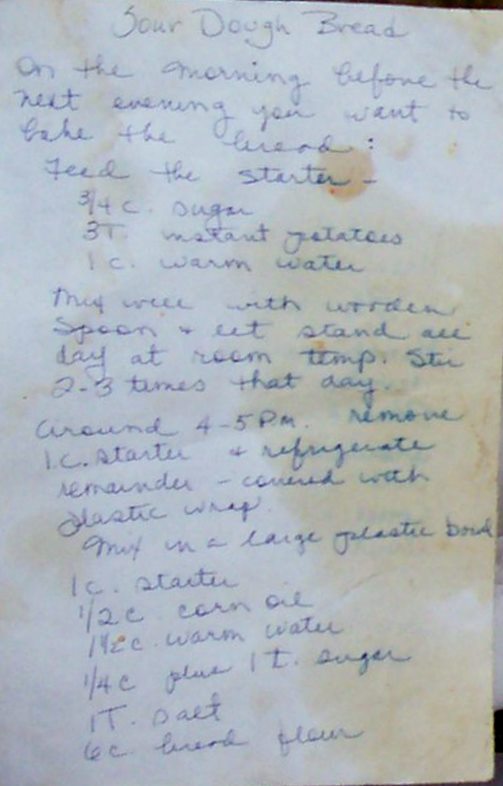 Sour Dough Bread
On the morning before the
next evening you want to
bake the bread:
Feed the starter -
3/4 c. sugar
3T. instant potatoes
1 c. warm water
Mix well with wooden
Spoon & let stand all
day at room temp. Stir
2-3 times that day.
Around 4-5 P.M. remove
1 c. starter & refrigerate
remainder - covered with
plastic wrap.
Mix in a large plastic bowl
1 c. starter
1/2 c. corn oil
1 1/2 c. warm water
1/4 c plus 1 T. sugar
1 T. salt
6 c. bread flour